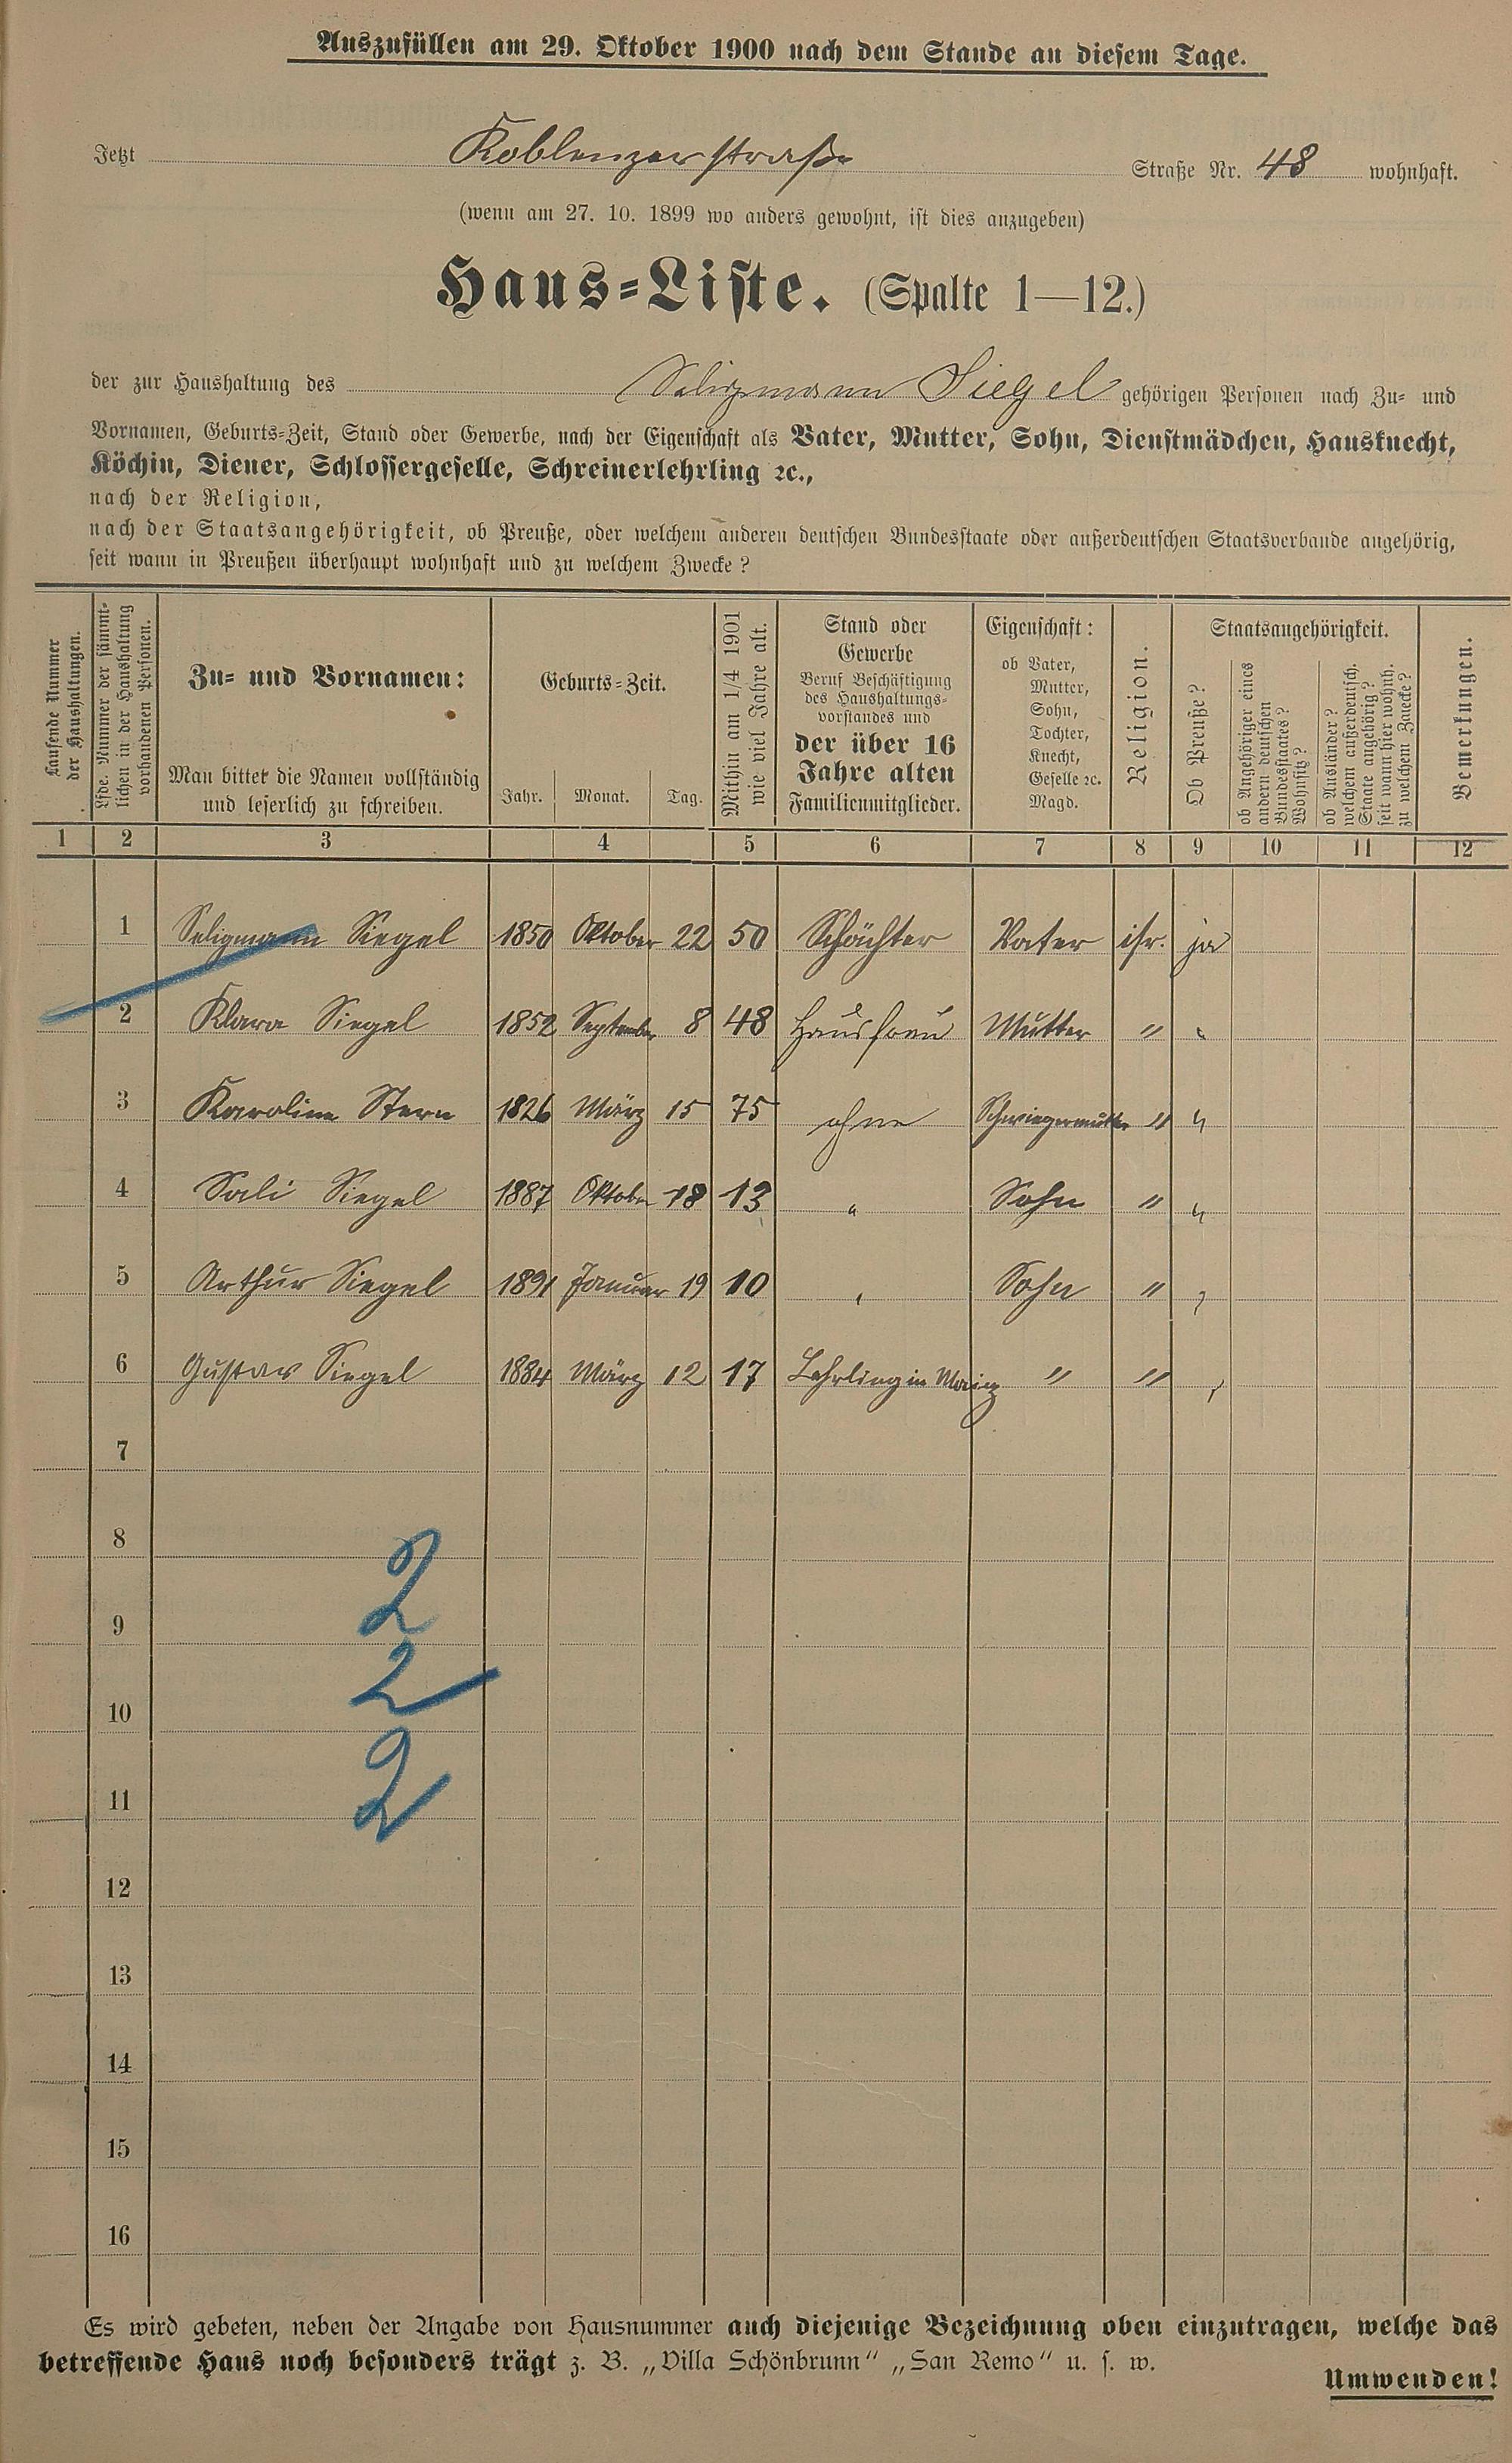 Auszufüllen am 29. Oktober 1900 nach dem Stande an diesem Tage.
Jetzt Koblenzerstraße Straße Nr. 48 wohnhaft.
(wenn am 27. 10. 1899 wo anders gewohnt, ist dies anzugeben)
Haus-Liste. (Spalte 1—12.)
der zur Haushaltung des Seligmann Siegel gehörigen Personen nach Zu- und
Vornamen, Geburts-Zeit, Stand oder Gewerbe, nach der Eigenschaft als Vater, Mutter, Sohn, Dienstmädchen, Hausknecht,
Köchin, Diener, Schlossergeselle, Schreinerlehrling ꝛc.,
nach der Religion,
nach der Staatsangehörigkeit, ob Preuße, oder welchem anderen deutschen Bundesstaate oder außerdeutschen Staatsverbande angehörig,
seit wann in Preußen überhaupt wohnhaft und zu welchem Zwecke?
Laufende Nummer
der Haushaltungen.
Lfde. Nummer der sämmt-
lichen in der Haushaltung
vorhandenen Personen.
Zu- und Vornamen:
Man bittet die Namen vollständig
und leserlich zu schreiben.
Geburts-Zeit.
Jahr. Monat. Tag.
Mithin am 1/4 1901
wie viel Jahre alt.
Stand oder
Gewerbe
Beruf Beschäftigung
des Haushaltungs-
vorstandes und
der über 16
Jahre alten
Familienmitglieder.
Eigenschaft:
ob Vater,
Mutter,
Sohn,
Tochter,
Knecht,
Geselle ꝛc.
Magd.
Religion.
Staatsangehörigkeit.
Ob Preuße?
ob Angehöriger eines
andern deutschen
Bundesstaates?
Wohnsitz?
ob Ausländer?
welchem außerdeutsch.
Staate angehörig?
seit wann hier wohnh.
zu welchem Zwecke?
Bemerkungen.
1 2 3 4 5 6 7 8 9 10 11 12
1 Seligmann Siegel 1850 Oktober 22 50 Schächter Vater isr. ja
2 Klara Siegel 1852 September 8 48 Hausfrau Mutter " "
3 Karoline Stern 1826 März 15 75 ohne Schwiegermutter " "
4 Sali Siegel 1887 Oktober 18 13 " Sohn " "
5 Arthur Siegel 1891 Januar 19 10 " Sohn " "
6 Gustav Siegel 1884 März 12 17 Lehrling in Mainz " " "
7
8
2
9
2
10
2
11
12
13
14
15
16
Es wird gebeten, neben der Angabe von Hausnummer auch diejenige Bezeichnung oben einzutragen, welche das
betreffende Haus noch besonders trägt z. B. „Villa Schönbrunn“ „San Remo“ u. s. w.
Umwenden!